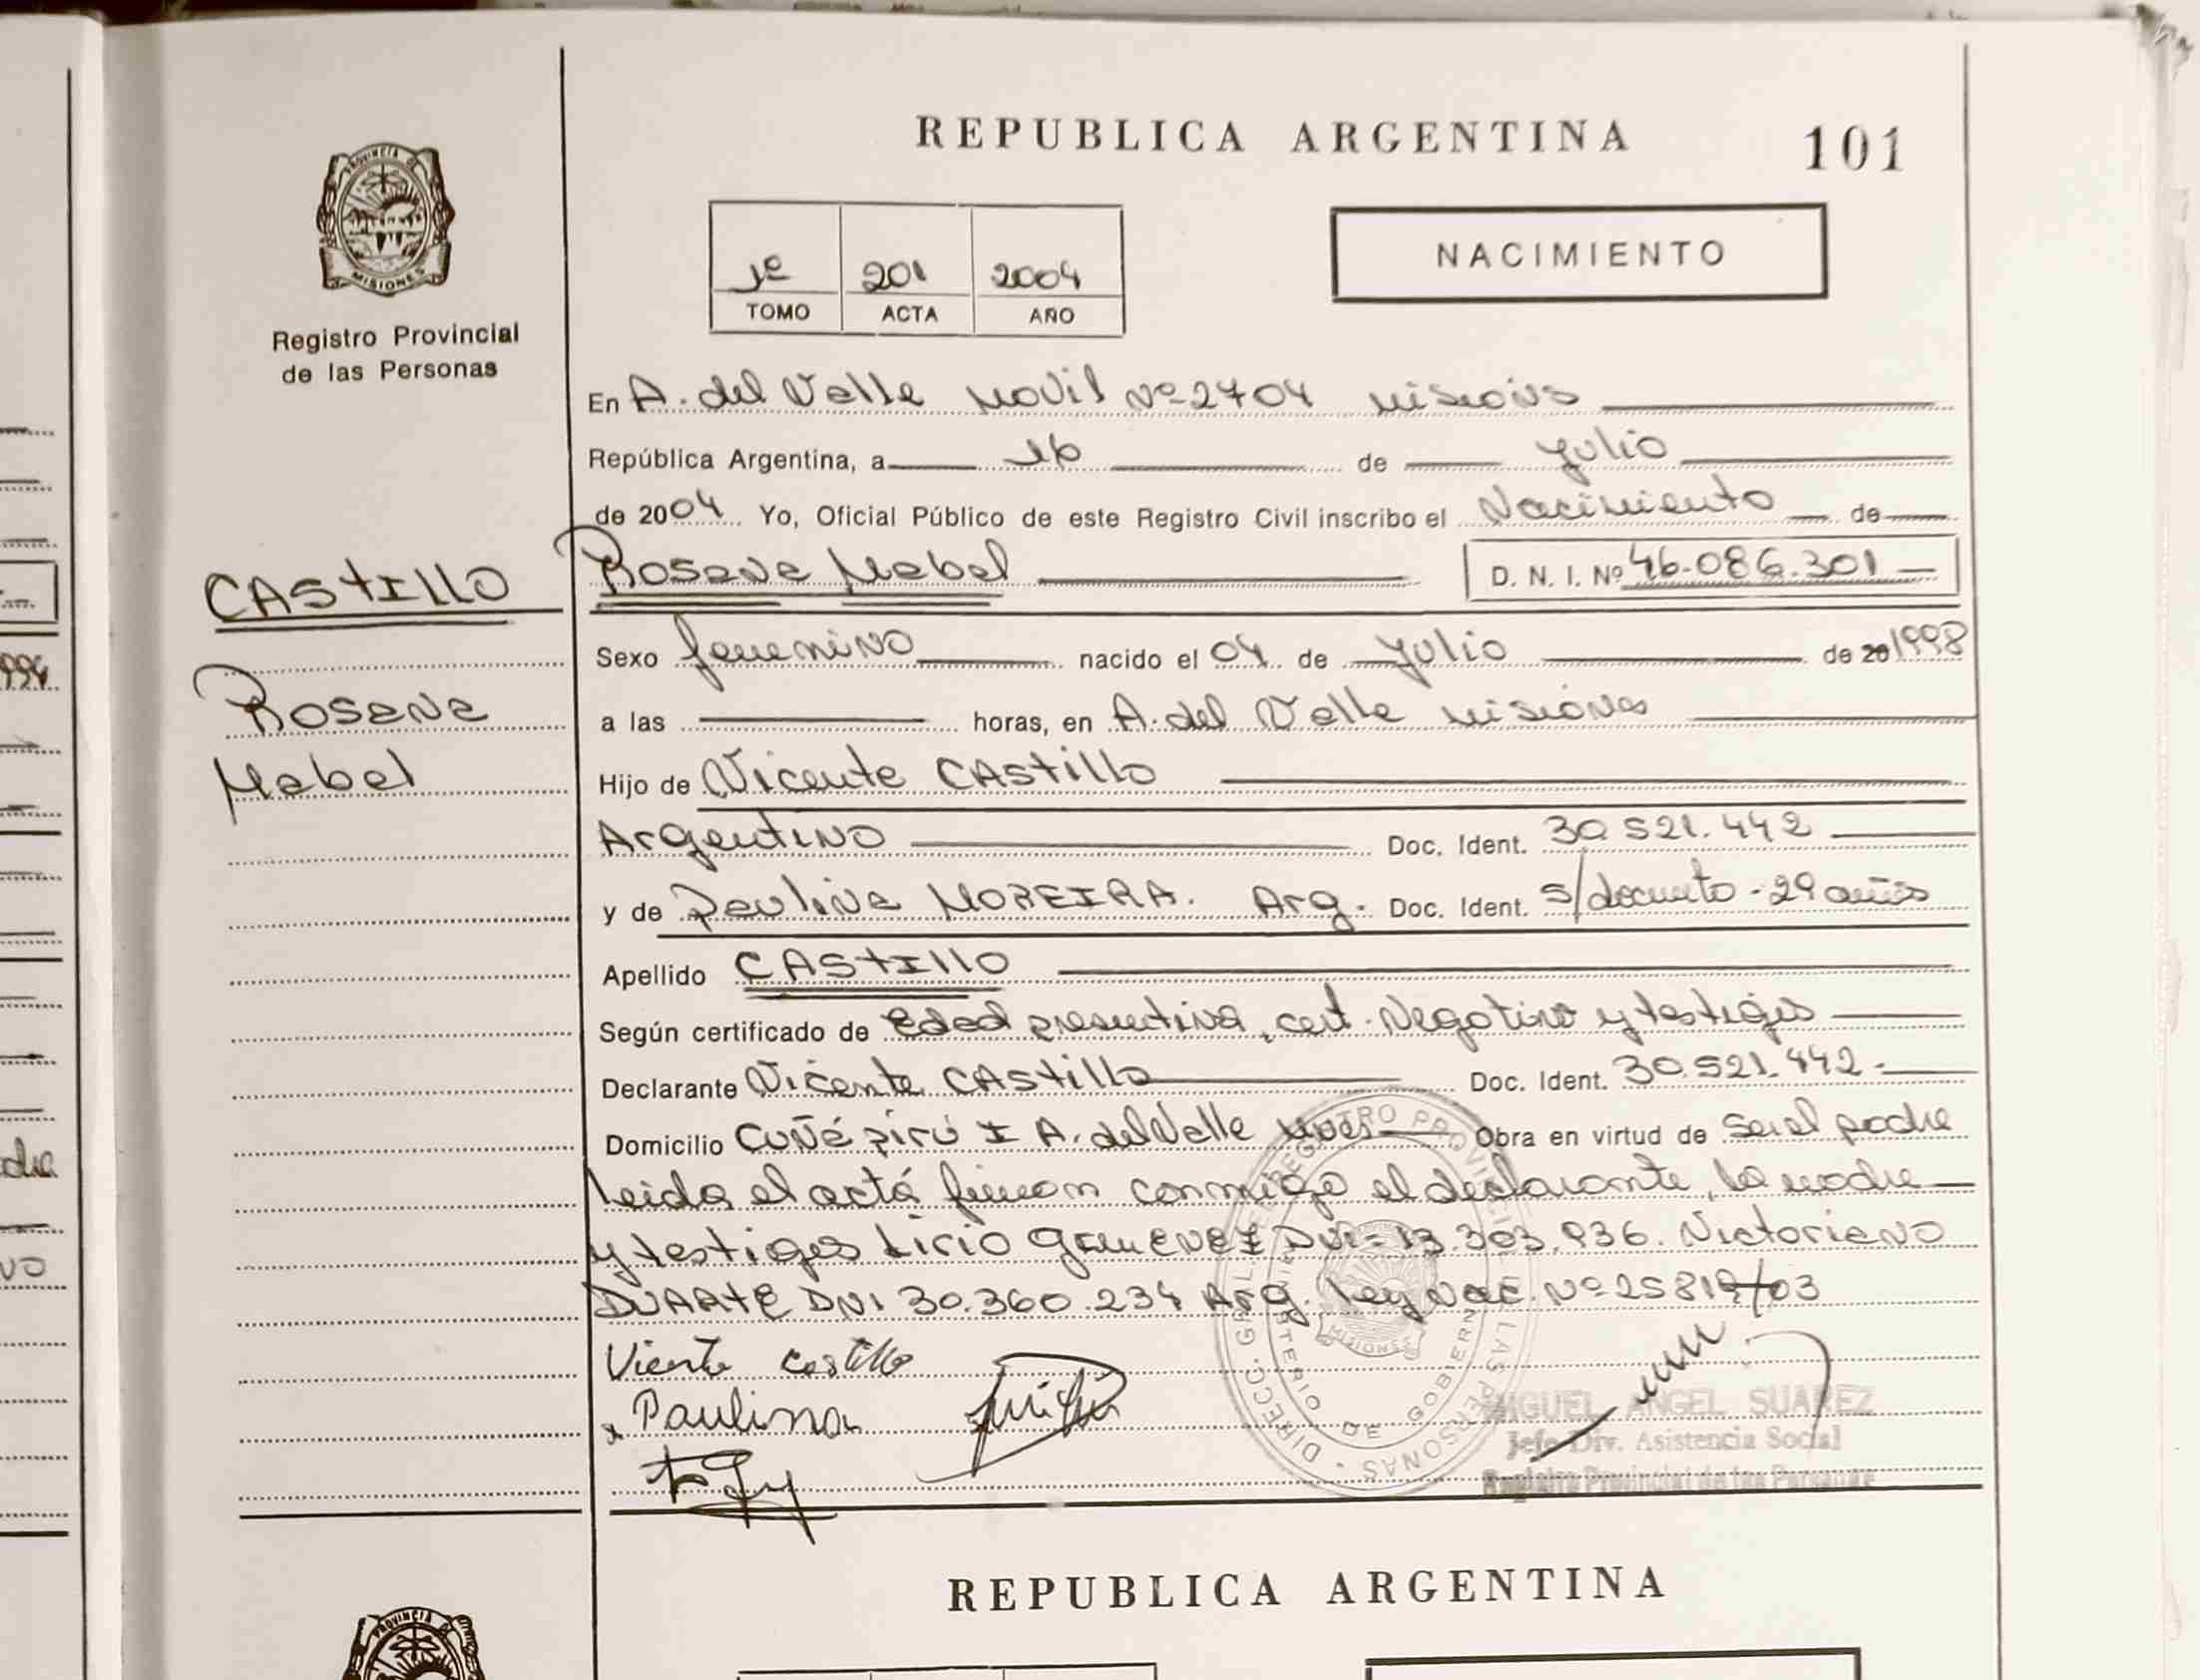 REPUBLICA ARGENTINA
101
PROVINCIA DE
MISIONES
Registro Provincial
de las Personas
1º 201 2004
TOMO ACTA AÑO
NACIMIENTO
En A. del Valle Movil Nº 2704 Misiones
República Argentina, a 16 de Julio
de 2004 Yo, Oficial Público de este Registro Civil inscribo el Nacimiento de
CASTILLO
Rosana Mabel
D. N. I. Nº 46.086.301
Sexo femenino nacido el 04 de Julio de 20 1998
Rosana
a las horas, en A. del Valle Misiones
Mabel
Hijo de Vicente CAStillo
Argentino Doc. Ident. 30.521.442
y de Paulina MOREIRA. Arg. Doc. Ident. s/documto - 29 años
Apellido CAStILLO
Según certificado de Edad presuntiva, cert. Negativo y testigos
Declarante Vicente CAStillo Doc. Ident. 30.521.442.
Domicilio Cuñá pirú I A. del Valle Mnes Obra en virtud de Ser el padre
Leida el acta firman conmigo el declarante, la madre
y testigos Lirio Gimenez DNI = 13.303.936. Victoriano
DUARTE DNI 30.360.234 Arg. Ley Nac. Nº 25819/03
Vicente Castillo
x Paulina
DIRECC. GRAL. DEL REGISTRO PROVINCIAL DE LAS PERSONAS
MINISTERIO DE GOBIERNO
MISIONES
MIGUEL ANGEL SUAREZ
Jefe Div. Asistencia Social
Registro Provincial de las Personas
REPUBLICA ARGENTINA
PROVINCIA